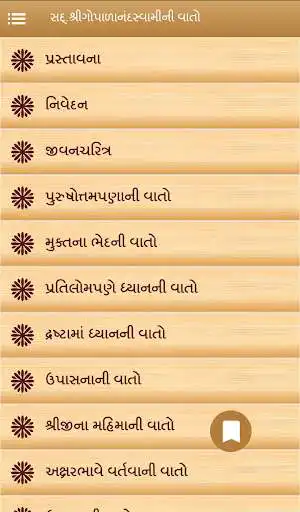 સદ્.શ્રીગોપાળાનંદસ્વામીની વાતો
પ્રસ્તાવના
નિવેદન
જીવનચરિત્ર
પુરુષોત્તમપણાની વાતો
મુક્તના ભેદની વાતો
પ્રતિલોમપણે ધ્યાનની વાતો
દ્રષ્ટામાં ધ્યાનની વાતો
ઉપાસનાની વાતો
શ્રીજીના મહિમાની વાતો
અક્ષરભાવે વર્તવાની વાતો